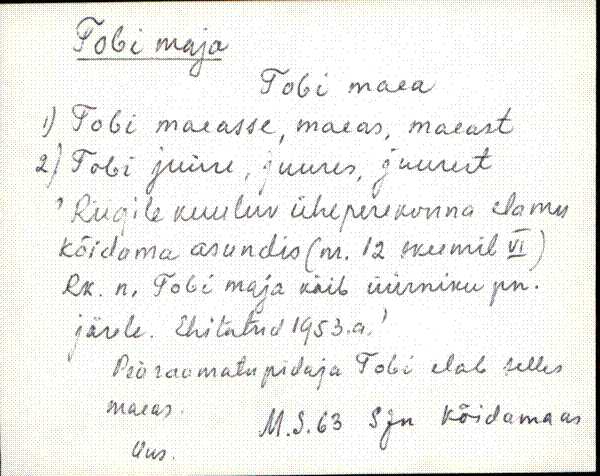 Tobi maja
Tobi maea
1) Tobi maeasse, maeas, maeast
2) Tobi juure, juures, juurest
' Riigile kuuluv üheperekonna elamu
Kõidama asundis (nr. 12 skeemil VI)
Rk. n. Tobi maja käib üürniku pn.
järele. Ehitatud 1953.a.'
Pearaamatupidaja Tobi elab selles
maeas.
M.S. 63 SJn Kõidamaas
Uus.